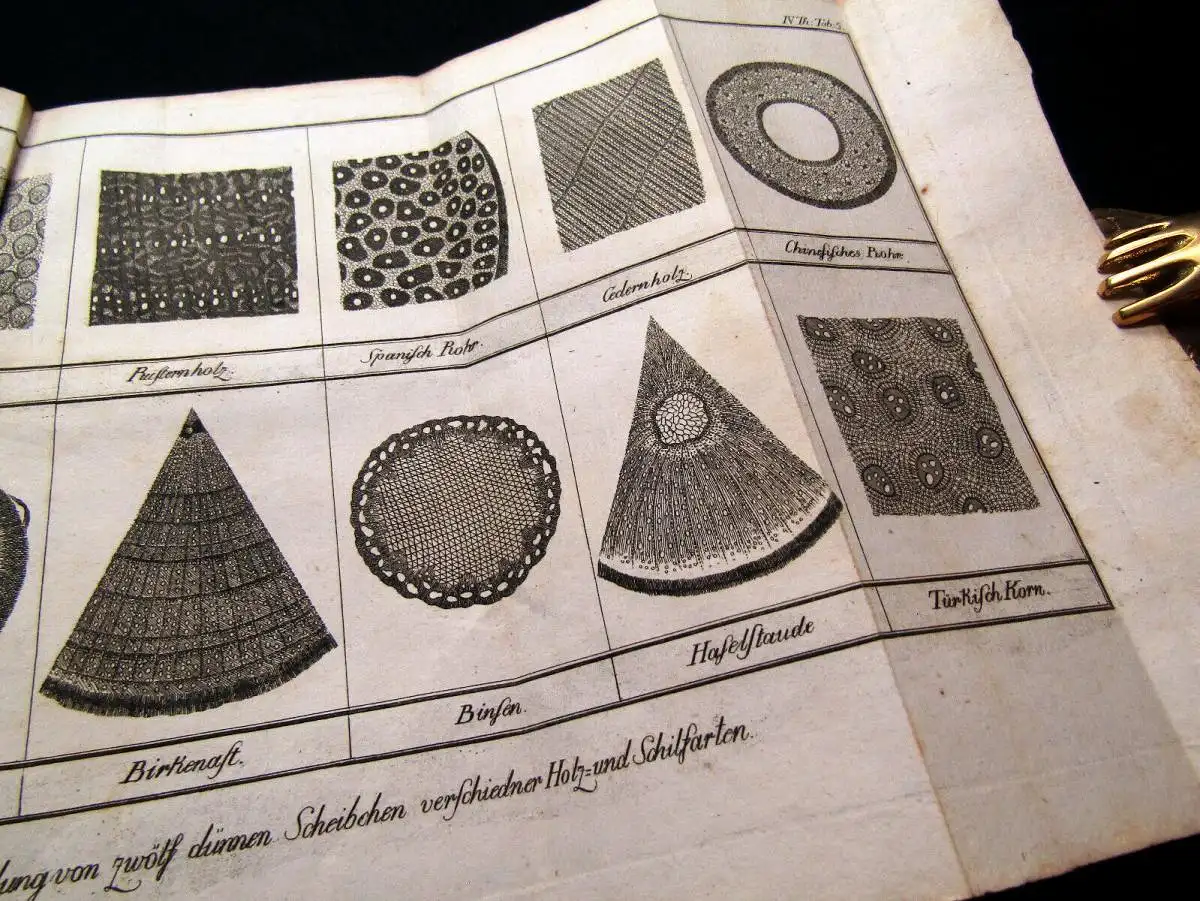 IV Th. Tab. 5.
Chinesisches Rohr.
Cedernholz.
Spanisch Rohr.
Rusternholz.
Türkisch Korn.
Haselstaude
Binsen.
Birkenast.
lung von zwölf dünnen Scheibchen verschiedner Holz=und Schilfarten.